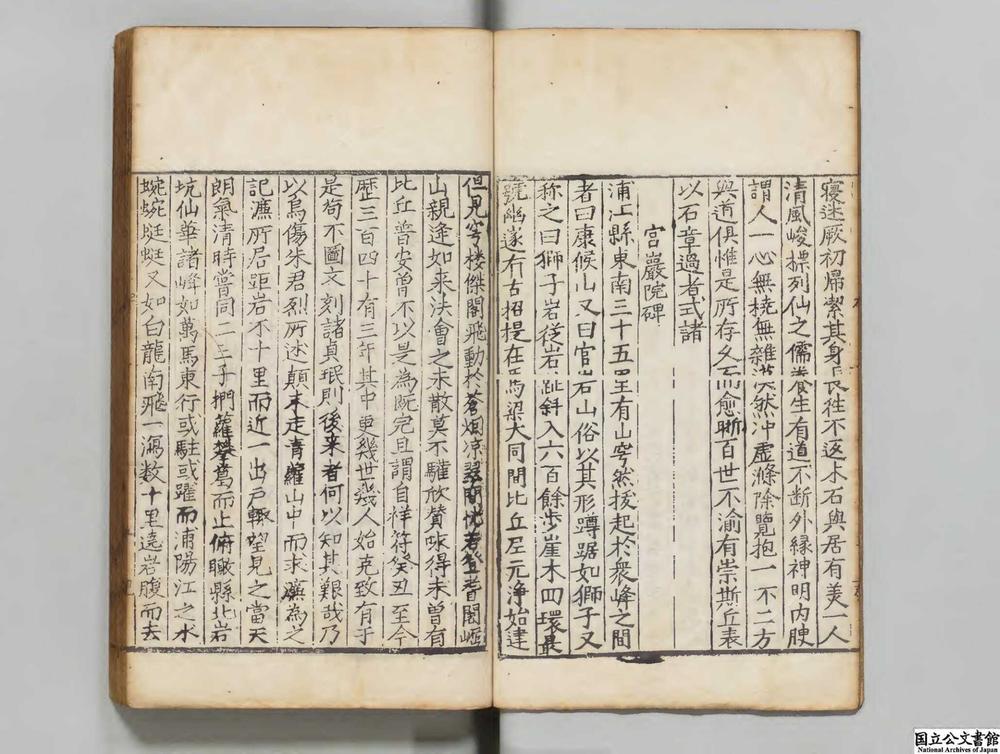 寝迷厥初帰絜其身長往不返木石與居有美一人
清風峻摽列仙之儒養生有道不断外縁神明内腴
謂人一心無撓無雜漠然冲虚滌除覽抱一不二方
與道俱惟是所存久而愈晰百世不渝有崇斯丘表
以石章過者式諸
宫巖院碑
浦江縣東南三十五里有山穹然拔起於衆峰之間
者曰康候山又曰官岩山俗以其形蹲踞如獅子又
称之曰獅子岩從岩趾斜入六百餘歩崖木四環最
號幽邃有古招提在焉梁大同間比丘元淨始建
但見穹楼傑閣飛動於蒼烟凉翠間恍若登耆闍崛
山親逢如来法會之未散莫不驩欣賛咏得未曽有
比丘普安曽不以是為既完且謂自祥符癸丑至今
歴三百四十有三年其中更幾世幾人始克致有于
是苟不圖文刻諸貞珉則後来者何以知其艱哉乃
以烏傷朱君烈所述顛末走青蘿山中而求濂為之
記濂所居距岩不十里而近一出戶輒望見之當天
朗氣清時嘗同二三子捫蘿攀葛而上俯瞰縣北岩
坑仙華諸峰如萬馬東行或駐或躍而浦陽江之水
蜿蜿蜓蜓又如白龍南飛一瀉数十里遶岩腹而去
国立公文書館
National Archives of Japan